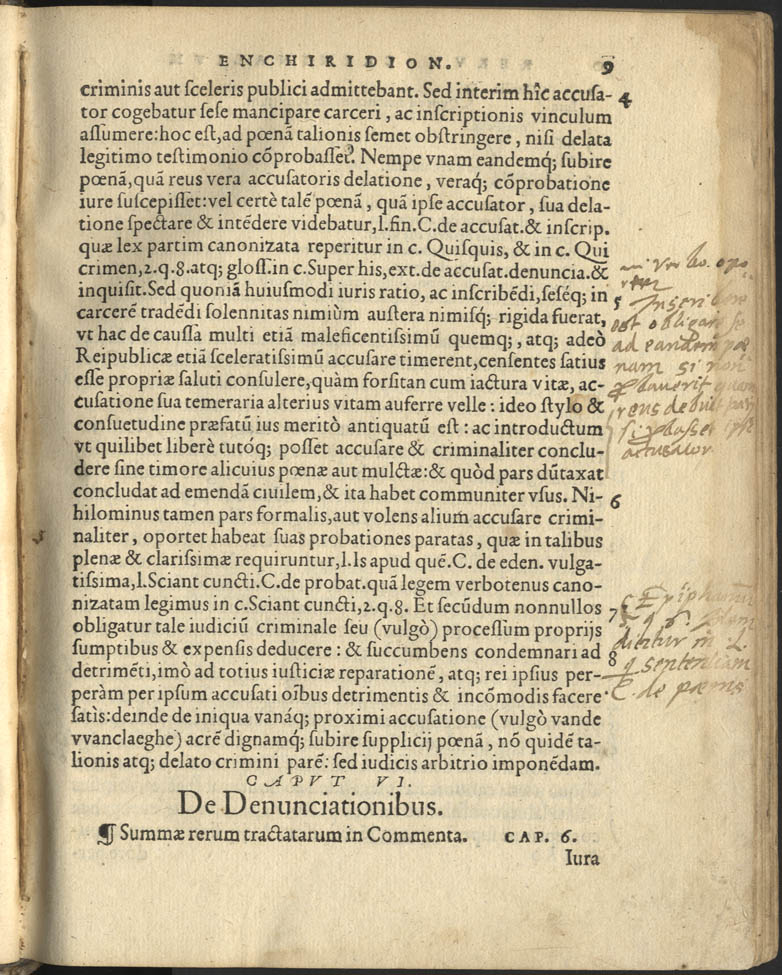 ENCHIRIDION. 9
criminis aut ſceleris publici admittebant. Sed interim hîc accuſa- 4
tor cogebatur ſeſe mancipare carceri, ac inſcriptionis vinculum
aſſumere: hoc eſt, ad pœnã talionis ſemet obſtringere, niſi delata
legitimo teſtimonio cõprobaſſet. Nempe vnam eandemq́; ſubire
pœnã, quã reus vera accuſatoris delatione, veraq́; cõprobatione
iure ſuſcepiſſet: vel certè talē pœnã, quã ipſe accuſator, ſua dela-
tione ſpectare & intēdere videbatur, l. fin. C. de accuſat. & inſcrip.
quæ lex partim canonizata reperitur in c. Quiſquis, & in c. Qui
crimen, 2. q. 8. atq; gloſſ. in c. Super his, ext. de accuſat. denuncia. &
inquiſit. Sed quoniã huiuſmodi iuris ratio, ac inſcribēdi, ſeſéq; in 5
carcerē tradēdi ſolennitas nimiùm auſtera nimiſq́; rigida fuerat,
vt hac de cauſſa multi etiã maleficentiſſimũ quemq;, atq; adeò
Reipublicæ etiã ſceleratiſſimũ accuſare timerent, cenſentes ſatius
eſſe propriæ ſaluti conſulere, quàm forſitan cum iactura vitæ, ac-
cuſatione ſua temeraria alterius vitam auferre velle: ideo ſtylo &
conſuetudine præfatũ ius meritò antiquatũ eſt: ac introductum
vt quilibet liberè tutóq; poſſet accuſare & criminaliter conclu-
dere ſine timore alicuius pœnæ aut mulctæ: & quòd pars dũtaxat
concludat ad emendã ciuilem, & ita habet communiter vſus. Ni- 6
hilominus tamen pars formalis, aut volens alium accuſare crimi-
naliter, oportet habeat ſuas probationes paratas, quæ in talibus
plenæ & clariſſimæ requiruntur, l. Is apud quē. C. de eden. vulga-
tiſſima, l. Sciant cuncti. C. de probat. quã legem verbotenus cano-
nizatam legimus in c. Sciant cuncti, 2. q. 8. Et ſecũdum nonnullos 7
obligatur tale iudiciũ criminale ſeu (vulgò) proceſſum proprijs
ſumptibus & expenſis deducere: & ſuccumbens condemnari ad 8
detrimēti, imò ad totius iuſticiæ reparationē, atq; rei ipſius per-
peràm per ipſum accuſati oĩbus detrimentis & incõmodis facere
ſatìs: deinde de iniqua vanáq; proximi accuſatione (vulgò vande
vvanclaeghe) acrē dignamq́; ſubire ſupplicij pœnã, nõ quidē ta-
lionis atq; delato crimini parē: ſed iudicis arbitrio imponēdam.
CAPVT VI.
De Denunciationibus.
¶ Summæ rerum tractatarum in Commenta. CAP. 6.
Iura
Inscribere
est obligare se
ad eandem pœ
nam si non
reus debuit
accusator
dicitur in L.
q sententiam
C. de pœnis